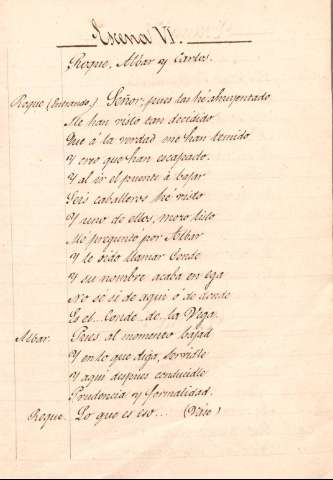 Escena VI.
Roque, Albar y Carlos.
Roque (Entrando) Señor, pues las hé ahuyentado
Me han visto tan decidido
Que á la verdad me han temido
Y creo que han escapado.
Y al ir el puente á bajar
Seis caballeros hé visto
Y uno de ellos, mozo listo
Me preguntó por Albar
Y le oido llamar Conde
Y su nombre acaba en ega
No sé si de aqui ó de donde
Es el Conde de la Vega.
Albar. Pues al momento bajad
Y en lo que diga, servidle
Y aqui despues conducidle
Prudencia y formalidad.
Roque. Lo que es eso... (Váse)